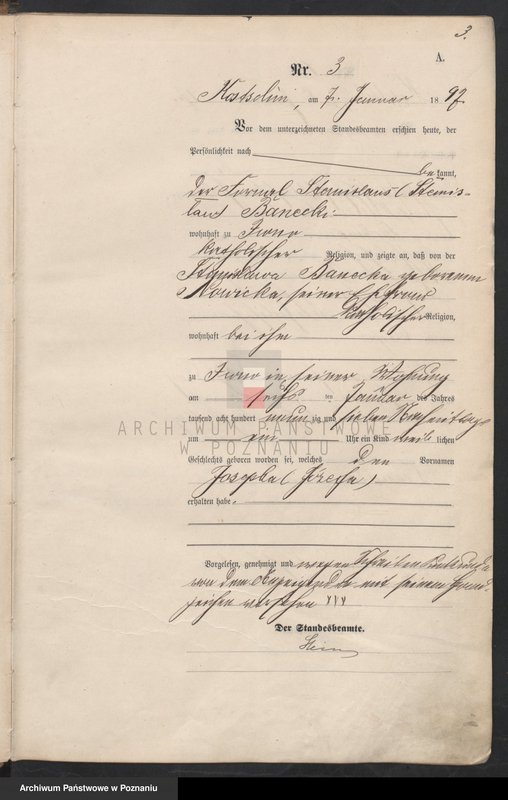 3.
A.
Nr. 3
am 7. Januar 1897
Vor dem unterzeichneten Standesbeamten erschien heute, der
Persönlichkeit nach
be kannt,
der Fornal Stanislaus (Stanis-
laus Banecki
wohnhaft zu Iwno
katholischer Religion, und zeigte an, daß von der
Stanislawa Banecka geborenen
Nowicka, seiner Ehefrau
katholischer Religion,
wohnhaft bei ihm
zu Iwno in seiner Wohnung
am sechs ten Januar des Jahres
tausend acht hundert neun zig und sieben Nachmittags
um ein Uhr ein Kind weib lichen
Geschlechts geboren worden sei, welches den Vornamen
Josepha (Józefa)
erhalten habe.
Vorgelesen, genehmigt und wegen Schreibensunkunde
von dem Anzeigenden mit seinem Hand-
zeichen versehen
Der Standesbeamte.
ARCHIWUM PAŃSTWOWE
W POZNANIU
Archiwum Państwowe w Poznaniu